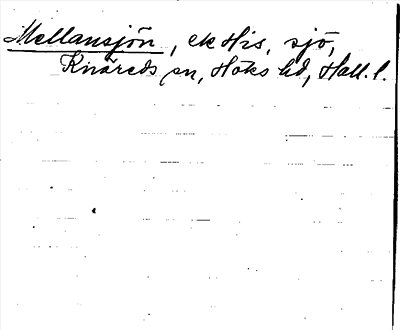 Mellansjön, ek His, sjö,
Knäreds sn, Höks hd, Hall. l.